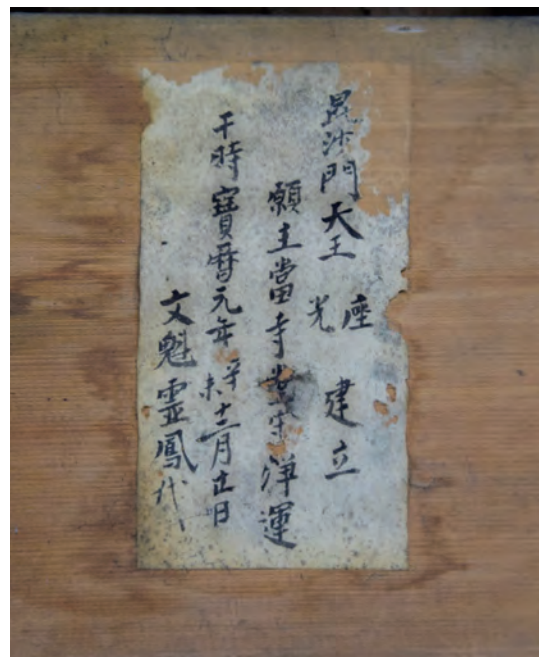 毘沙門天王 座光 建立
願主當寺堂守洋運
干時寳暦元年辛未十二月吉日
文魁霊鳳代